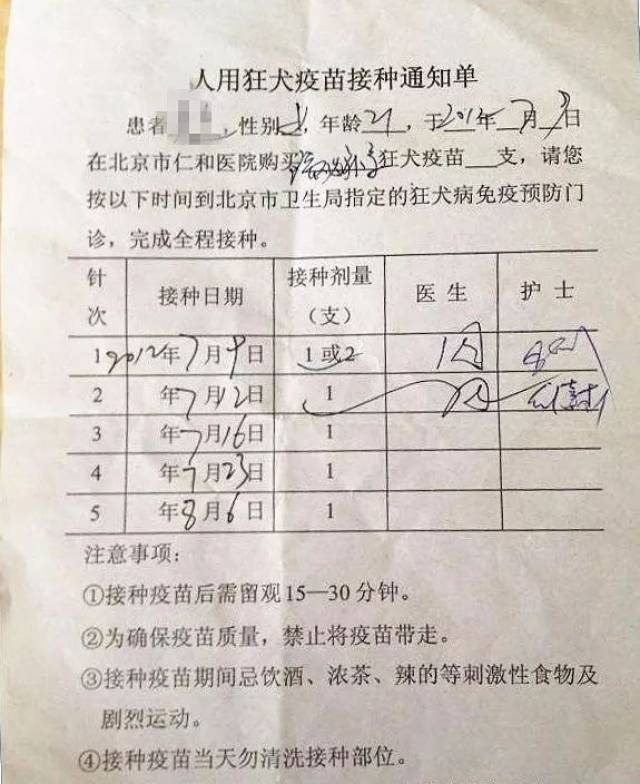 人用狂犬疫苗接种通知单
患者 ，性别 ，年龄21，于2012年7月9日
在北京市仁和医院购买 狂犬疫苗 支，请您
按以下时间到北京市卫生局指定的狂犬病免疫预防门
诊，完成全程接种。
针次 接种日期 接种剂量（支） 医生 护士
1 2012年7月9日 1或2
2 年7月12日 1
3 年7月16日 1
4 年7月23日 1
5 年8月6日 1
注意事项：
①接种疫苗后需留观15—30分钟。
②为确保疫苗质量，禁止将疫苗带走。
③接种疫苗期间忌饮酒、浓茶、辣的等刺激性食物及
剧烈运动。
④接种疫苗当天勿清洗接种部位。